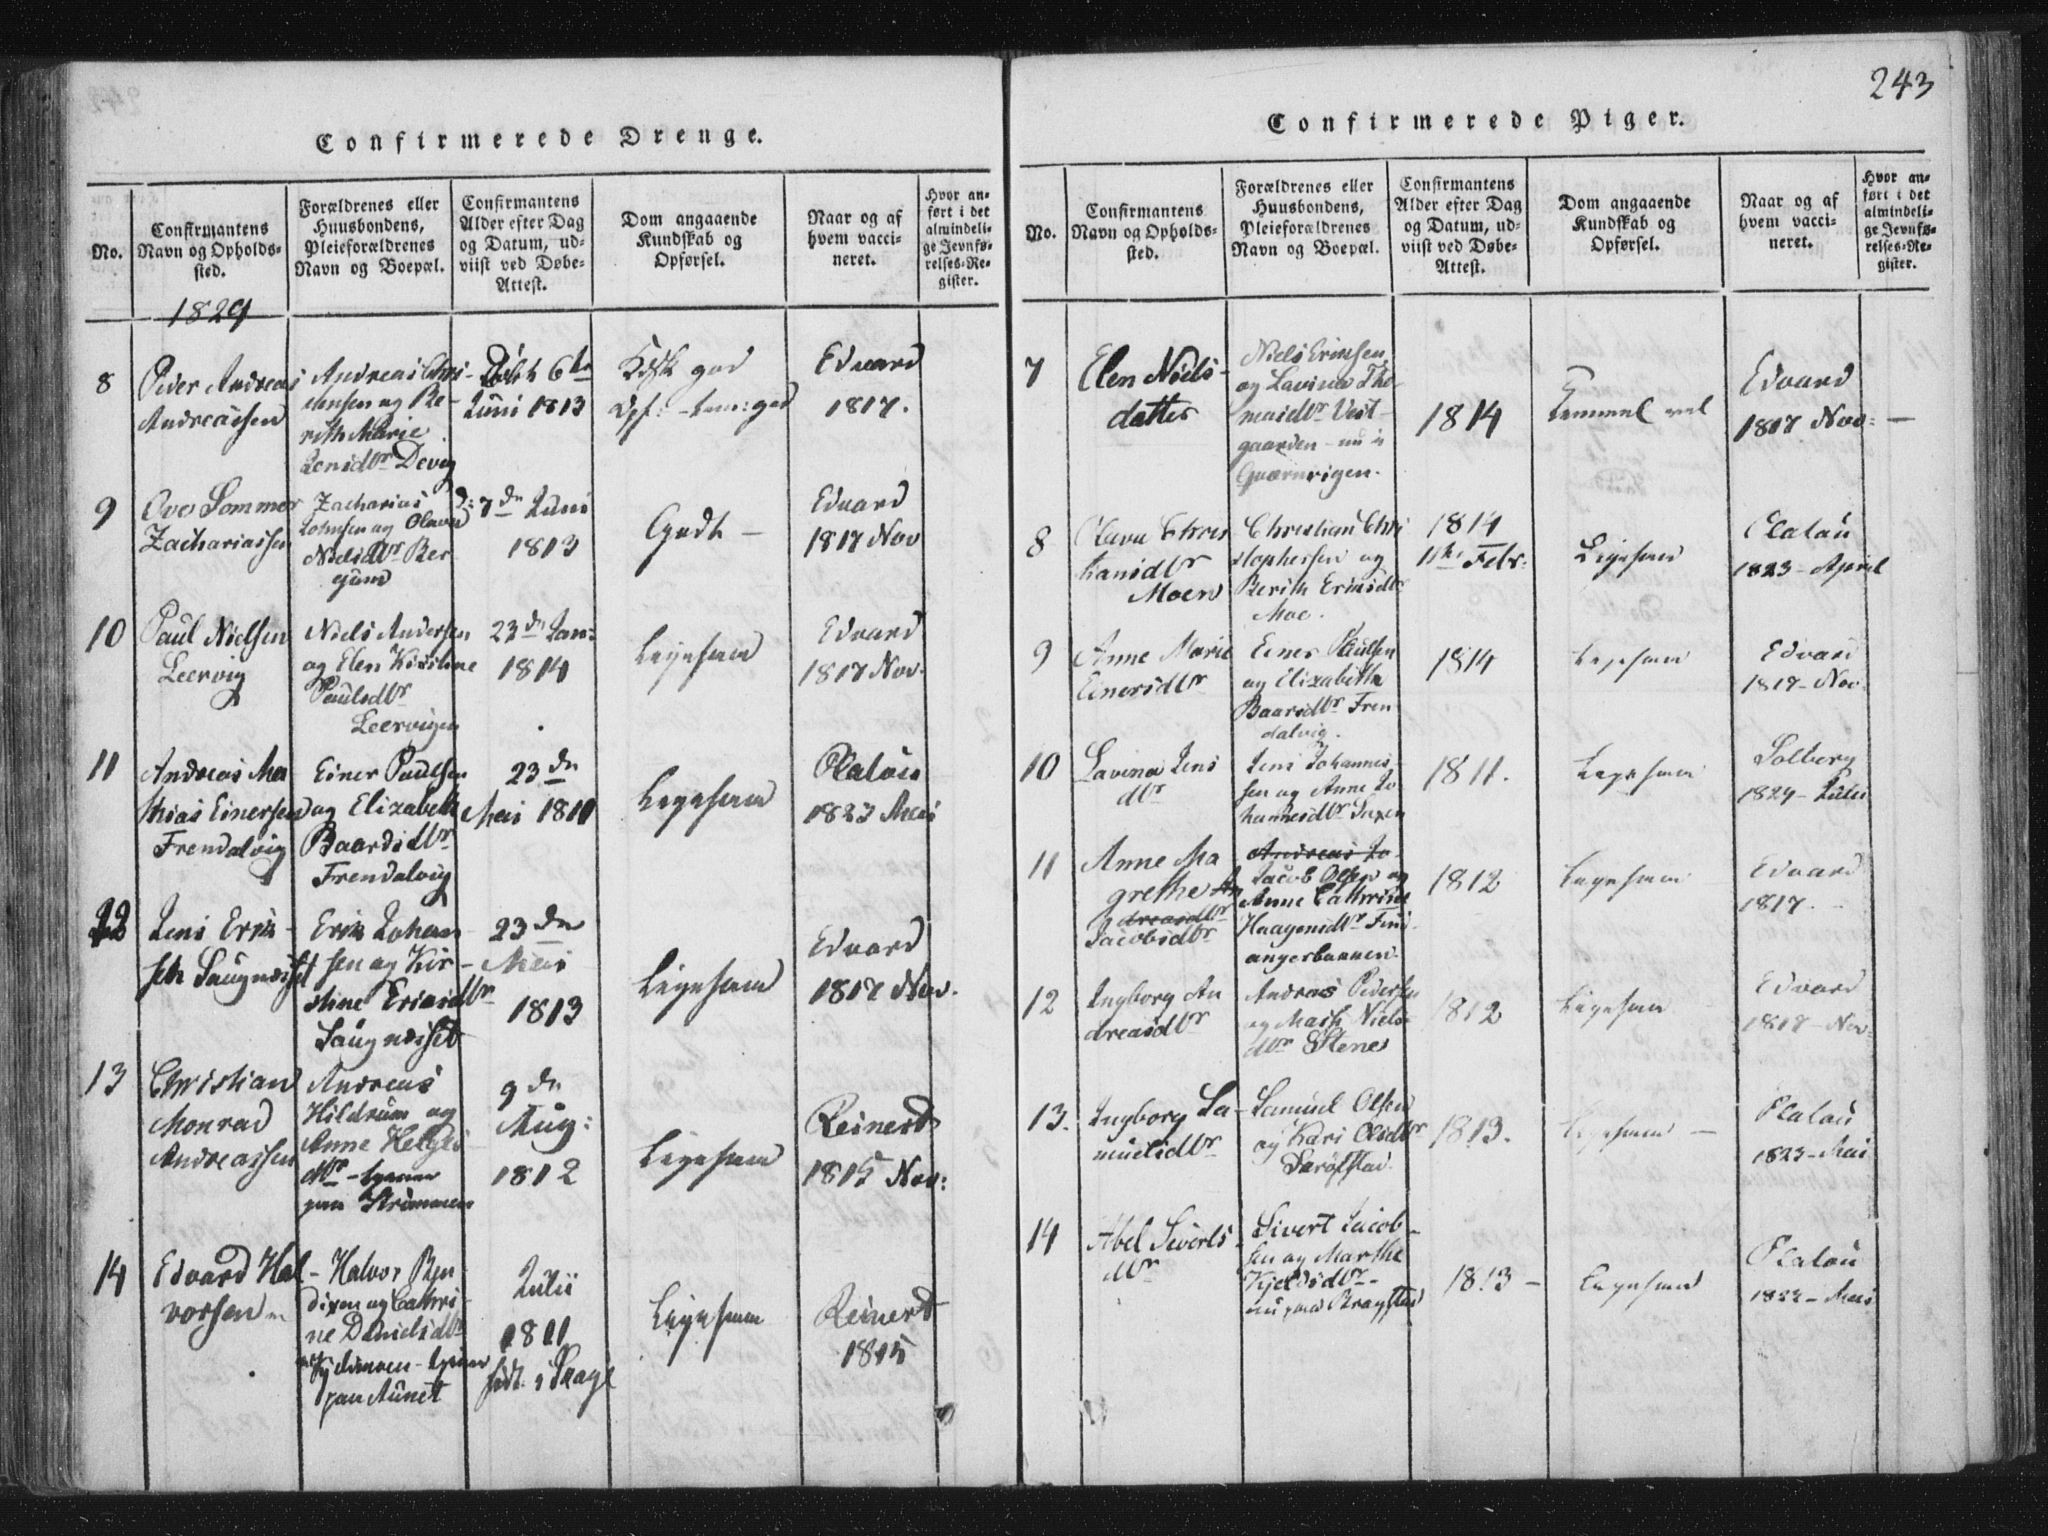 243
Confirmerede Drenge.
No.
Confirmantens
Navn og Opholds-
sted.
Forældrenes eller
Huusbondens,
Pleieforældrenes
Navn og Boepæl.
Confirmantens
Alder efter Dag
og Datum, ud-
viist ved Døbe-
Attest.
Dom angaaende
Kundskab og
Opførsel.
Naar og af
hvem vacci-
neret.
Hvor an-
ført i det
almindeli-
ge Jevnfø-
relses-Re-
gister.
1829
8
Peder Andreas
Andreassen
Andreas Chri-
stensen og Be-
rith Marie
Jensdtr Devig
Døbt 6te
Juni 1813
Kdsk god
Opf:
Edvard
1817.
9
Ove Sommer
Zachariassen
Zacharias
Johnsen og Olava
Nielsdtr Ber-
gum
D: 7de Juni
1813
Godt –
Edvard
1817 Nov
10
Paul Nielsen
Leervig
Niels Andersen
og Elen Kirstine
Paulsdtr
Leervigen
23de Jan:
1814
Ligesaa
Edvard
1817 Nov.
11
Andreas Ma
thias Einersen
Frendalvig
Einer Paulsen
og Elizabeth
Baardsdtr
Frendalvig
23de
Mai 1810
Ligesaa
Platou
1823 Mai
12
Jens Erik-
sen Saugnæsset
Erik Johan
sen og Kir-
stine Ericsdtr
Saugnæsset
23de
Mai
1813
Ligesaa
Edvard
1817 Nov.
13
Christian
Monrad
Andreassen
Andreas
Hildrum og
Anne Helges
dtr
paa Strømmen
9de
Aug:
1812
Ligesaa
Reinert
1815 Nov:
14
Edvard Hal-
vorsen
Halvor Ben
dixen og Cathri-
ne Danielsdtr
paa Aunet
Julii
1811
født i
Ligesaa
Reinert
1815
Confirmerede Piger.
No.
Confirmantens
Navn og Opholds-
sted.
Forældrenes eller
Huusbondens,
Pleieforældrenes
Navn og Boepæl.
Confirmantens
Alder efter Dag
og Datum, ud-
viist ved Døbe-
Attest.
Dom angaaende
Kundskab og
Opførsel.
Naar og af
hvem vacci-
neret.
Hvor an-
ført i det
almindeli-
ge Jevnfø-
relses-Re-
gister.
7
Elen Niels-
datter
Niels Eriksen
og Lavina Tho-
masdtr Vest-
gaarden – nu i
Qværnvigen.
1814
Temmel vel
Edvard
1817 Nov: –
8
Olava Chris
tiansdtr
Moen
Christian Chri
stophersen og
Berith Eriksdtr
Moe.
1814
11te Febr:
Ligesaa
Platou
1823 – April
9
Anne Marie
Einersdtr
Einer Paulsen
og Elizabeth
Baarsdtr Fren
dalvig.
1814
Ligesaa
Edvard
1817 – Nov.
10
Lavina Jens
dtr
Jens Johannes-
sen og Anne Jo
hannesdtr
1811.
Ligesaa
Solberg
1829 – Julii
11
Anne Ma
grethe An
dreasdtr
Jacobsdtr
Andreas Jo-
Jacob Olsen og
Anne Cathrine
Haagensdtr Find-
angerbunnen.
1812
Ligesaa
Edvard
1817.
12
Ingborg An
dreasdtr
Andreas Pedersen
og Marit Niels-
dtr Stene
1812
Ligesaa
Edvard
1817 – Nov:
13.
Ingborg Sa-
muelsdtr
Samuel Olsen
og Kari Olsdtr
1813.
Ligesaa –
Platou
1823 – Mai
14
Abel Siverts-
dtr
Sivert Jacob-
sen og Marthe
Kjeldsdtr –
nu paa
1813 –
Ligesaa
Platou
1822 – Mai